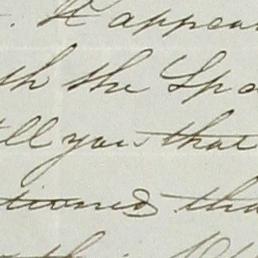 . It appea
th the Spa
ell you that
tioned tha